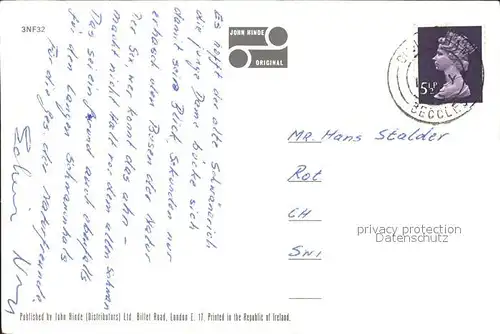 3NF32
JOHN HINDE
ORIGINAL
5½P
BECCLES
Es hofft der alte Schwänerich
die junge Dame bücke sich
damit sein Blick Sekunden nur
erhasch den Busen der Natur
Der Six wer konnt das ahn –
macht nicht Halt vor dem alten Schwan
Das sei ein Grund auch ebenfalls
für den langen Schwanenhals
Für die Ges. der Naturfreunde
Mr. Hans Stalder
Rot
CH
SWI
privacy protection
Datenschutz
Published by John Hinde (Distributors) Ltd. Billet Road, London E. 17. Printed in the Republic of Ireland.